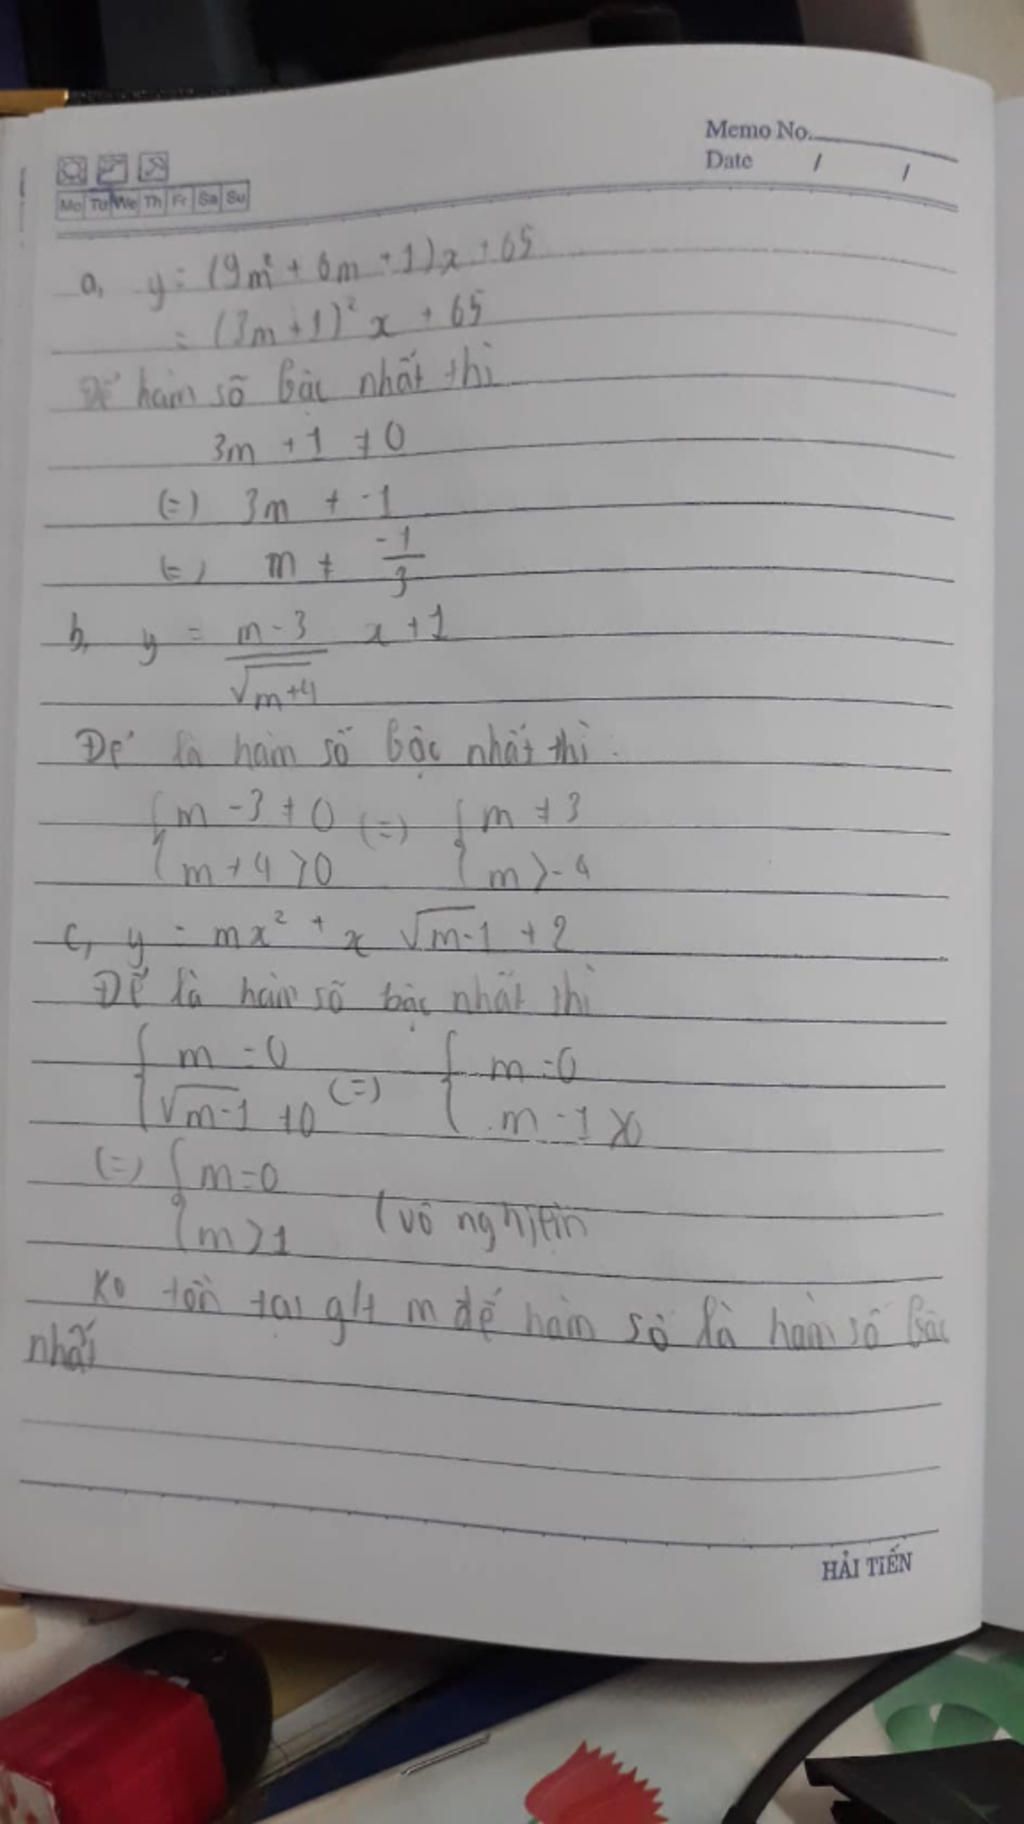 Memo No.
Date / /
Mo Tu We Th Fr Sa Su
a, y = (9m² + 6m + 1)x + 65
= (3m + 1)² x + 65
Để hàm số bậc nhất thì
3m + 1 ≠ 0
(=) 3m ≠ -1
(=) m ≠ -1/3
b, y = m-3/√m+4 x + 1
Để là hàm số bậc nhất thì.
{m - 3 ≠ 0 (=) {m ≠ 3
{m + 4 > 0 {m > -4
c, y = mx² + x √m-1 + 2
Để là hàm số bậc nhất thì
{m = 0 (=) {m = 0
{√m-1 ≠ 0 {m - 1 > 0
(=) {m = 0
{m > 1 (vô nghiệm
Ko tồn tại g/t m để hàm số là hàm số bậc
nhất
HẢI TIẾN